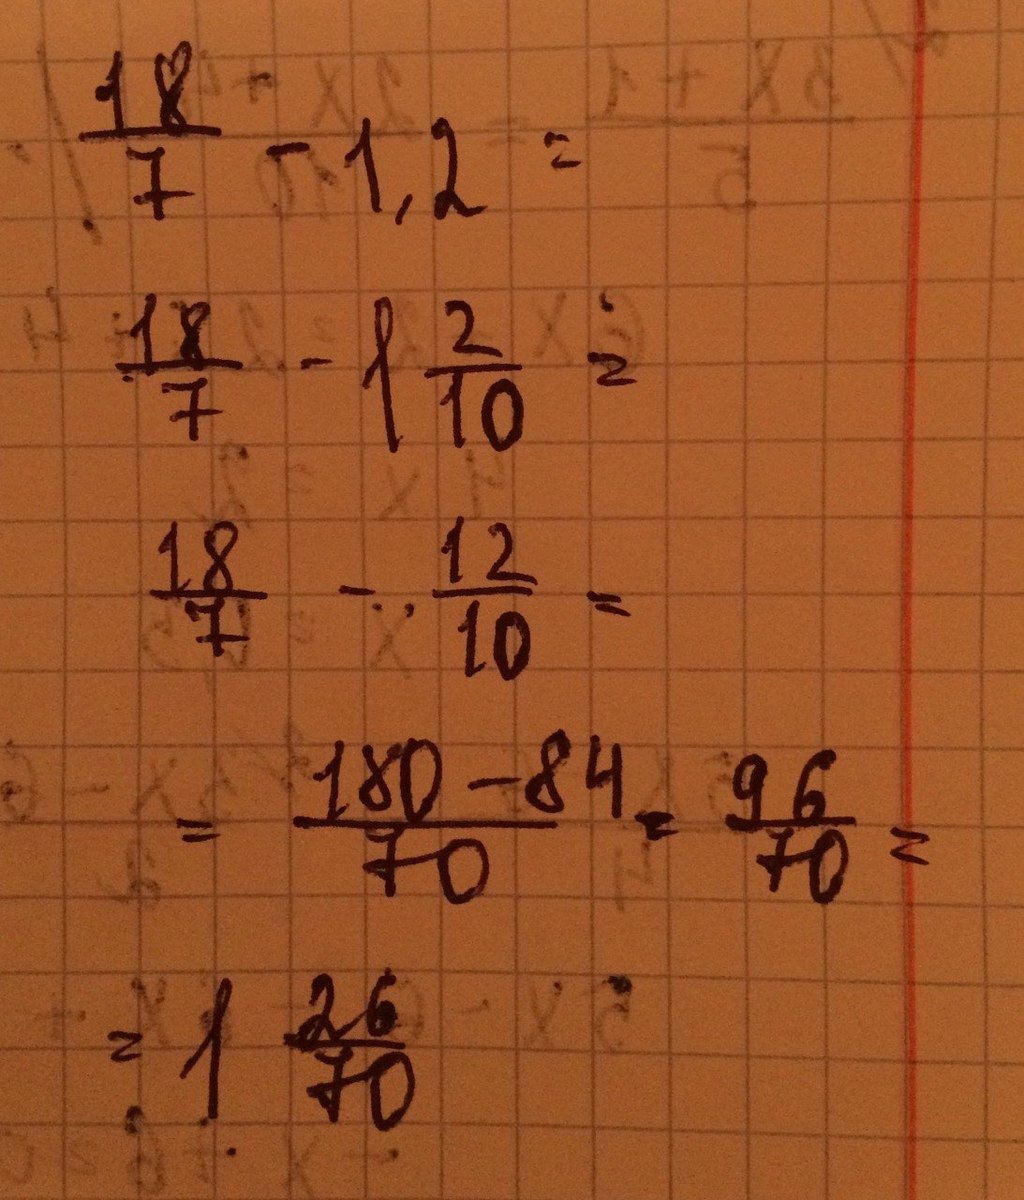 18/7 - 1,2 =
18/7 - 1 2/10 =
18/7 - 12/10 =
= (180 - 84)/70 = 96/70 =
= 1 26/70